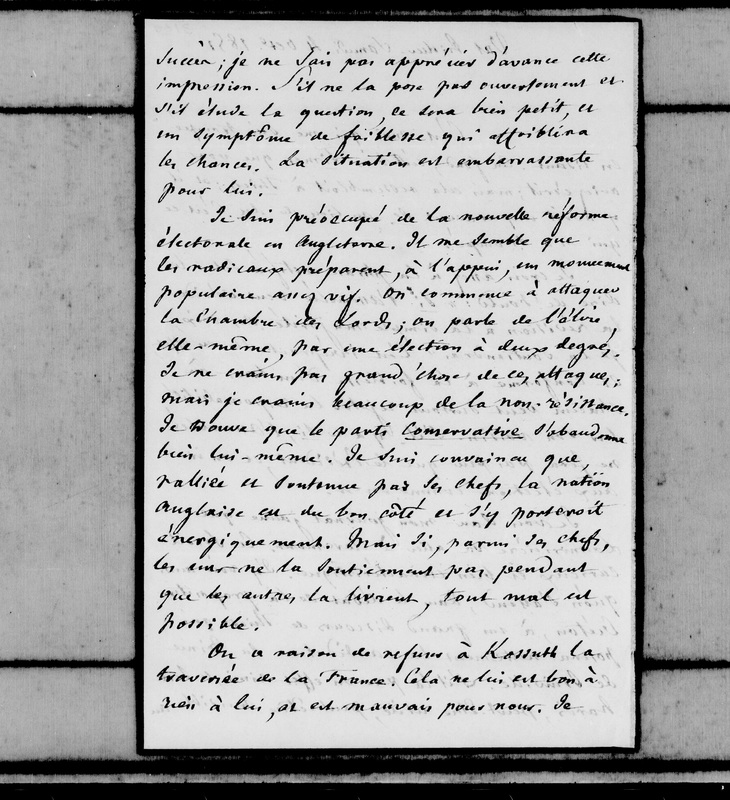 succès; je ne sais pas apprécier d'avance cette
impression. S'il ne la pose pas ouvertement et
s'il élude la question, ce sera bien petit, et
un symptôme de faiblesse qui affoiblira
les chances. La situation est embarrassante
pour lui.
Je suis préoccupé de la nouvelle réforme
électorale en Angleterre. Il me semble que
les radicaux préparent, à l'appui, un mouvement
populaire assez vif. On commence à attaquer
la Chambre des Lords; on parle de l'élire,
elle-même, par une élection à deux degrés.
Je ne crains pas grand'chose de ces attaques;
mais je crains beaucoup de la non-résistance.
Je trouve que le parti Conservative s'abandonne
bien lui-même. Je suis convaincu que,
ralliée et soutenue par ses chefs, la nation
Anglaise est du bon côté et s'y porteroit
énergiquement. Mais si, parmi ses chefs,
les uns ne la soutiennent pas pendant
que les autres la livrent, tout mal est
possible.
On a raison de refuser à Kossuth la
traversée de la France. Cela ne lui est bon à
rien à lui, et est mauvais pour nous. Je